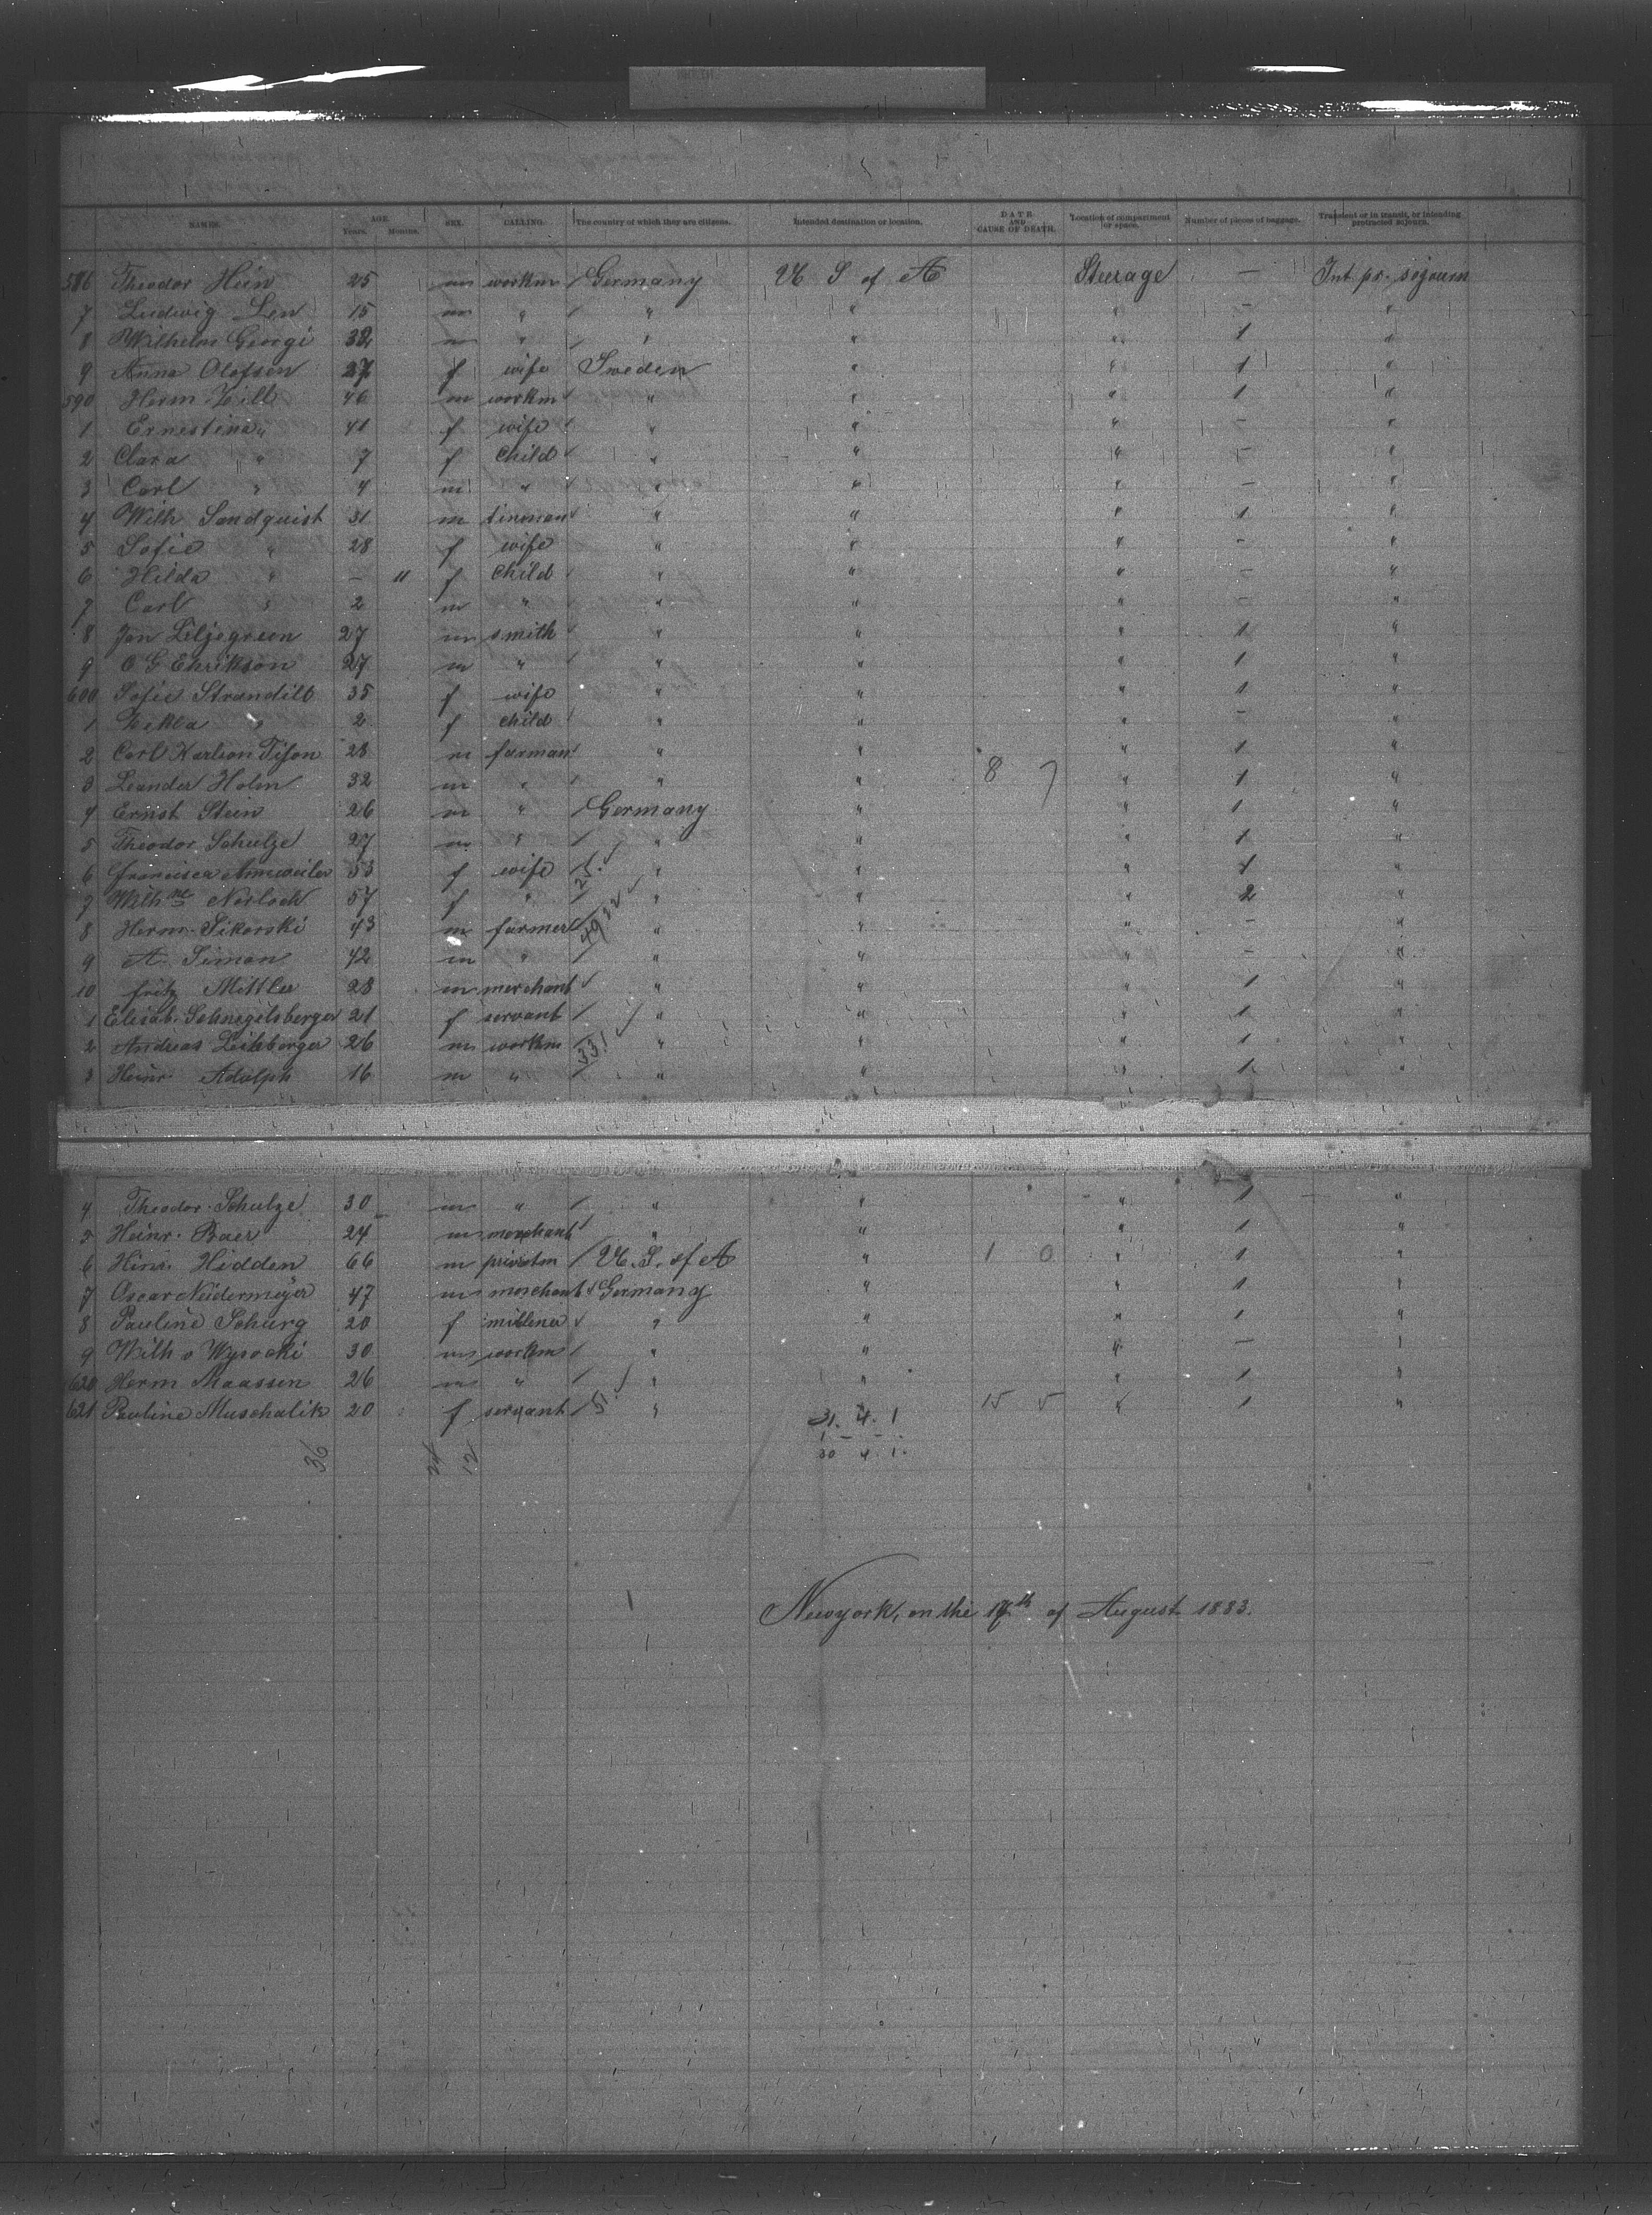 NAMES. AGE. Years. Months. SEX. CALLING. The country of which they are citizens. Intended destination or location. DATE AND CAUSE OF DEATH. Location of compartment or space. Number of pieces of baggage. Transient or in transit, or intending protracted sojourn.
586 Theodor Hein 25 m workm / Germany U S of A Steerage — Int. pr. sojourn
7 Ludwig Len 15 m " / " " " — "
8 Wilhelm Georgi 32 m " / " " " 1 "
9 Anna Olofson 27 f wife Sweden " " 1 "
590 Herm. Zill 46 m workm " " " 1 "
1 Ernestina " 41 f wife " " " — "
2 Clara " 7 f Child " " " — "
3 Carl " 4 m " " " " — "
4 Wilh Sandquist 31 m " " " 1 "
5 Sofie " 28 f wife " " " — "
6 Hilda " — 11 f Child " " " — "
7 Carl " 2 m " " " " — "
8 Jan Liljegreen 27 m smith " " " 1 "
9 C G Ehrikson 27 m " " " " 1 "
600 Sofie 35 f wife " " " 1 "
1 " 2 f child " " " — "
2 Carl Karlson 28 m farman " " " 1 "
3 Leander Holm 32 m " " " 8 7 " 1 "
4 Ernst Stein 26 m " / Germany " " 1 "
5 Theodor Schulze 27 m " / " " " 1 "
6 Francisca 53 f wife / " " " 1 "
7 Wilhne 57 f " / " " " 2 "
8 Herm. Sikorski 43 m farmer " " " — "
9 A. Simon 42 m " / " " " — "
10 Fritz Mittler 28 m merchant " " " 1 "
1 Elisab. Schnegelsberger 21 f servant / " " " 1 "
2 Andreas 26 m workm 331 " " " 1 "
3 Heinr. Adolph 16 m " / " " " 1 "
4 Theodor Schulze 30 m " / " " " 1 "
5 Heinr. Baer 24 m merchant " " " 1 "
6 Hinr. Hidden 66 m / U. S. of A " 1 0 " 1 "
7 Oscar Neidermeyer 47 m merchant Germany " " 1 "
8 Pauline Schurg 20 f milliner " " " 1 "
9 Wilh v Wysocki 30 m workm / " " " — "
620 Herm Maassen 26 m " / " " " 1 "
621 Pauline Muschalik 20 f servant / 51 " " 15 5 " 1 "
31. 4. 1
1 - -
36 24 12 30 4 1.
Newyork, on the 17th of August 1883.